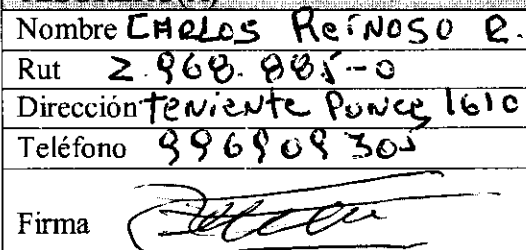 Nombre CARLOS ReiNOSO R.
Rut 2.968.885-0
Dirección teNieNte PoNce 1610
Teléfono 996909305
Firma